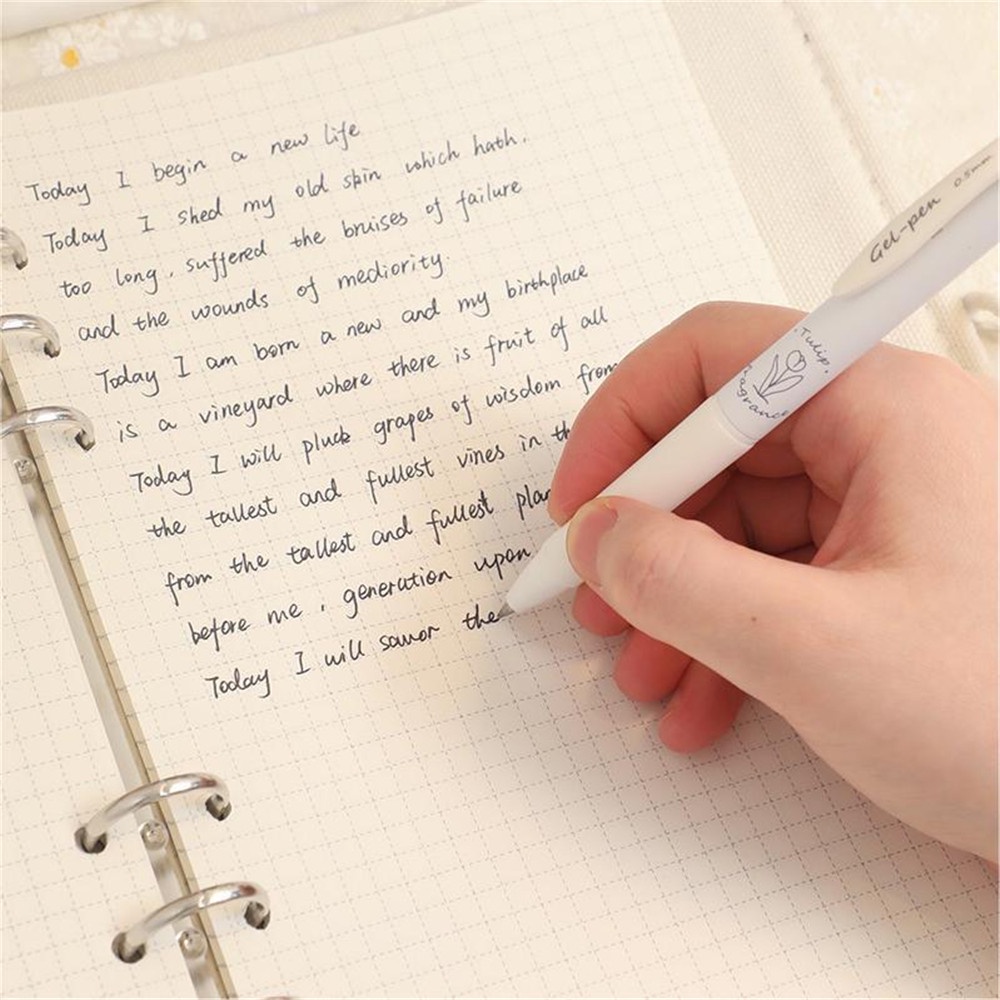 Today I begin a new life
Today I shed my old skin which hath.
too long, suffered the bruises of failure
and the wounds of mediority.
Today I am born a new and my birthplace
is a vineyard where there is fruit of all
Today I will pluck grapes of wisdom from
the tallest and fullest vines in th
from the tallest and fullest plan
before me, generation upon
Today I will savor the
Gel-pen 0.5mm
Tulip
fragrance